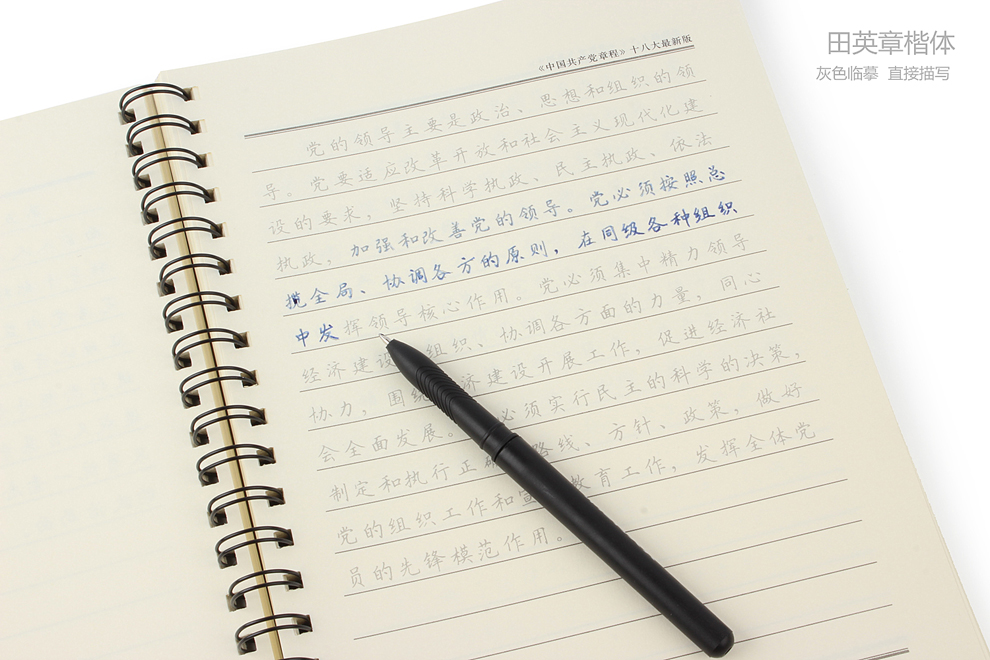 田英章楷体
灰色临摹 直接描写
《中国共产党章程》十八大最新版
党的领导主要是政治、思想和组织的领
导。党要适应改革开放和社会主义现代化建
设的要求，坚持科学执政、民主执政、依法
执政，加强和改善党的领导。党必须按照总
揽全局、协调各方的原则，在同级各种组织
中发挥领导核心作用。党必须集中精力领导
经济建设 组织、协调各方面的力量，同心
协力，围绕 济建设开展工作，促进经济社
会全面发展。 必须实行民主的科学的决策，
制定和执行正确 路线、方针、政策，做好
党的组织工作和宣 教育工作，发挥全体党
员的先锋模范作用。